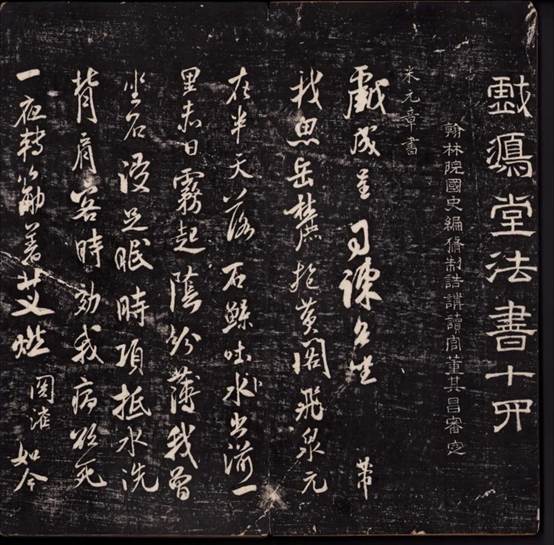 戲鴻堂法書十四
翰林院國史編脩制誥講讀官董其昌審定
米元章書
戲成呈 司諫台坐 芾
我思岳麓抱黄閣飛泉元
在半天落石鯨吐水出湔一
里赤日霧起蔭紛薄我曾
坐石浸足眠時項抵水洗
背肩客時効我病欲死
一夜轉筋著艾燃 関澥 如今